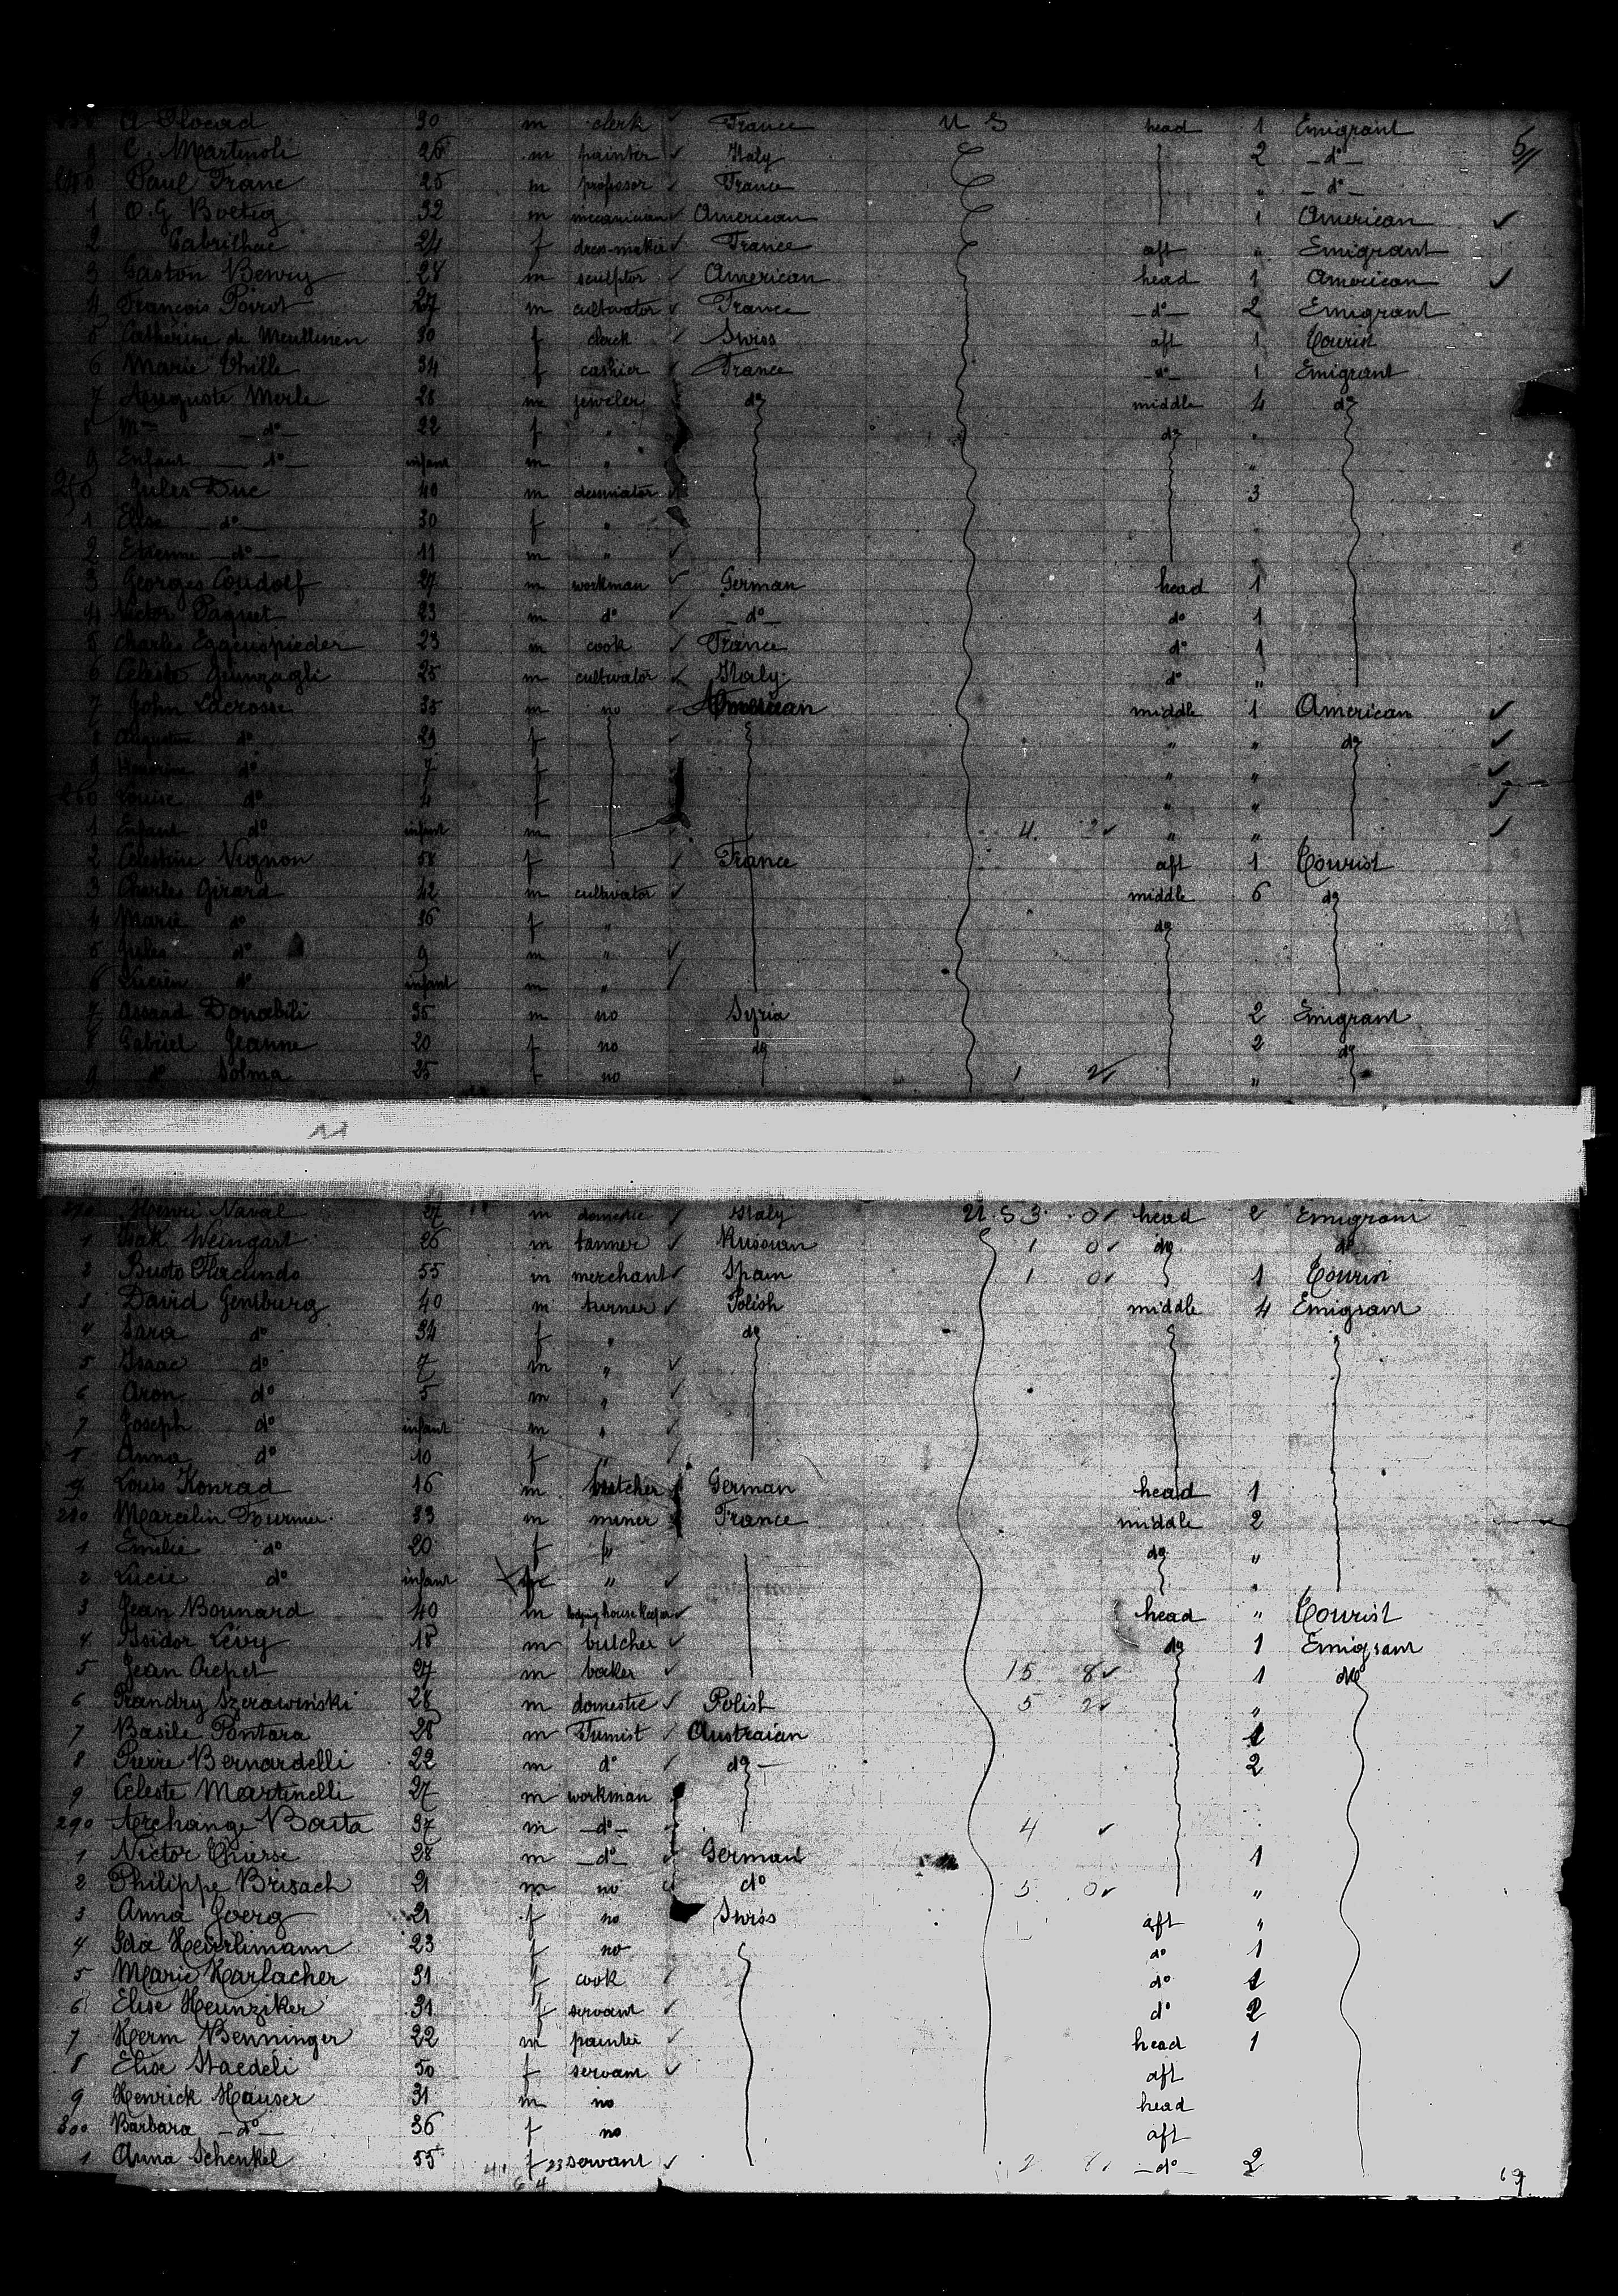 A 30 m clerk ✓ France U S head 1 Emigrant 5//
9 C. Martinoli 26 m painter ✓ Italy 2 - do -
240 Paul Franc 25 m professor ✓ France " - do -
1 O. G Boetig 32 m mecanician ✓ American 1 American ✓
2 Cabrilhac 24 f dress-maker ✓ France aft " Emigrant
3 Gaston Benry 28 m sculptor ✓ American head 1 American ✓
4 François Poirot 27 m cultivator ✓ France - do - 2 Emigrant
5 Catherine de Meullinen 30 f clerck ✓ Swiss aft 1 Tourist
6 Marie Thille 34 f cashier ✓ France - do - 1 Emigrant
7 Auguste Merle 28 m jeweler do middle 4 do
8 Mme - do - 22 f " do "
9 Enfant - do - infant m " "
250 Jules Duc 40 m 3
1 Elise - do - 30 f "
2 Etienne - do - 11 m " ✓
3 Georges Coudolf 27 m workman ✓ German head 1
4 Victor Paquet 23 m do ✓ - do - do 1
5 Charles Eggenspieder 23 m cook ✓ France do 1
6 Celeste 25 m cultivator ✓ Italy do "
7 John Lacrosse 35 m no ✓ American middle 1 American ✓
8 Augustine do 29 f ✓ " " do ✓
9 do 7 f " " ✓
260 Louise do 4 f " " ✓
1 Enfant do infant m 4 2 ✓ " " ✓
2 Celestine Vignon 58 f ✓ France aft 1 Tourist
3 Charles Girard 42 m cultivator ✓ middle 6 do
4 Marie do 36 f " do
5 Jules do 9 m " ✓
6 Lucien do infant m " ✓
7 Assaad Donabili 35 m no Syria 2 Emigrant
8 Gabriel Jeanne 20 f no do 2 do
9 do Solma 25 f no 1 2 ✓ "
270 Henri Naval 27 m domestic ✓ Italy U. S 3 0 ✓ head 2 Emigrant
1 Isak Weingart 26 m tanner ✓ Russian 1 0 ✓ do do
2 Busto Flacundo 55 m merchant ✓ Spain 1 0 ✓ 1 Tourist
3 David Gensburg 40 m turner ✓ Polish middle 4 Emigrant
4 Sara do 34 f " do
5 Isaac do 7 m " ✓
6 Aron do 5 m " ✓
7 Joseph do infant m " ✓
8 Anna do 10 f " ✓
9 Louis Konrad 16 m butcher German head 1
280 Marcelin Fournier 33 m miner France middle 2
1 Emilie do 20 f " do "
2 Lucie do infant " ✓ "
3 Jean Bounard 40 m lodging house keeper ✓ head " Tourist
4 Isidor Levy 18 m butcher ✓ do 1 Emigrant
5 Jean Crepet 27 m baker ✓ 15 8 ✓ 1 do
6 Prandry Szerawinski 28 m domestic ✓ Polish 5 2 ✓ "
7 Basile Pontara 28 m Fumist ✓ Austraian 1
8 Pierre Bernardelli 22 m do ✓ do - 2
9 Celeste Martinelli 27 m workman
290 Archange Basta 37 m - do - 4 ✓
1 Victor Thierse 28 m - do - German 1
2 Philippe Brisach 21 m no do 5 0 ✓ "
3 Anna Joerg 21 f no Swiss aft "
4 Ida Heurlimann 23 f no do 1
5 Marie Karlacher 31 f cook ✓ do 1
6 Elise Heunziker 31 f servant ✓ do 2
7 Herm Benninger 22 m painter ✓ head 1
8 Elise Staedeli 50 f servant ✓ aft
9 Henrick Hauser 31 m no head
300 Barbara - do - 36 f no aft
1 Anna Schenkel 55 f 23 servant ✓ 2 8 - do - 2
64